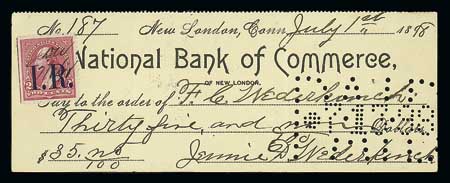 No. 187 New London, Conn. July 1st 1898
National Bank of Commerce,
OF NEW LONDON,
I.R.
Pay to the order of F. C.
Thirty five, and no/100 Dollars
$35. no/100 Jennie D.